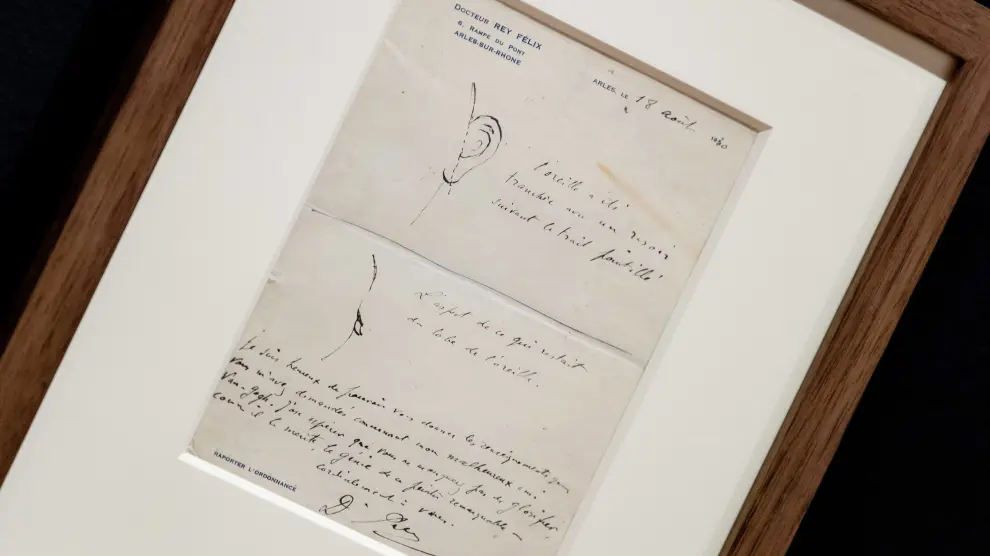 DOCTEUR REY FÉLIX
6, RAMPE DU PONT
ARLES-SUR-RHONE
ARLES, LE 18 août 1930
l'oreille a été
tranchée avec un rasoir
suivant le trait pointillé
L'aspect de ce qui restait
du lobe de l'oreille.
Je suis heureux de pouvoir vous donner les renseignements que
vous m'avez demandés concernant mon malheureux ami
Van-Gogh. J'ose espérer que vous ne manquerez pas de glorifier
comme il le mérite, le génie de ce peintre remarquable
Cordialement à vous.
Dr Rey
RAPORTER L'ORDONNANCE